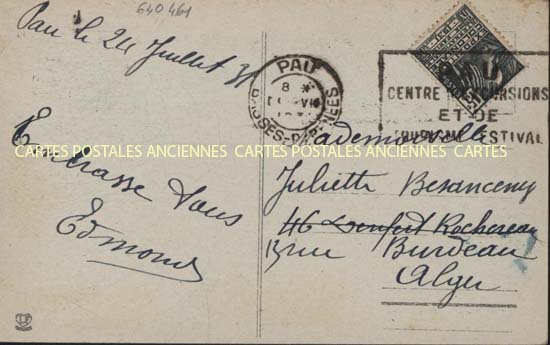 640461
Pau le 24 Juillet 31
Embrasse tous
Edmond
PAU
BASSES-PYRENEES
CENTRE D'EXCURSIONS
ET DE
TOURISME ESTIVAL
CARTES POSTALES ANCIENNES CARTES POSTALES ANCIENNES CARTES
Mademoiselle
Juliette Besanceny
46 Denfert Rochereau
13 rue Burdeau
Alger